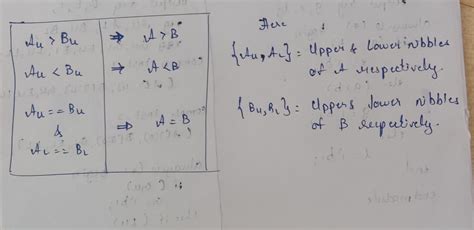 Au > Bu ⇒ A > B
Au < Bu ⇒ A < B
Au == Bu
&
AL == BL
⇒ A = B
Here
{Au, AL} = Upper & Lower nibbles
of A respectively.
{Bu, BL} = Uppers lower nibbles
of B respectively.
endmodule